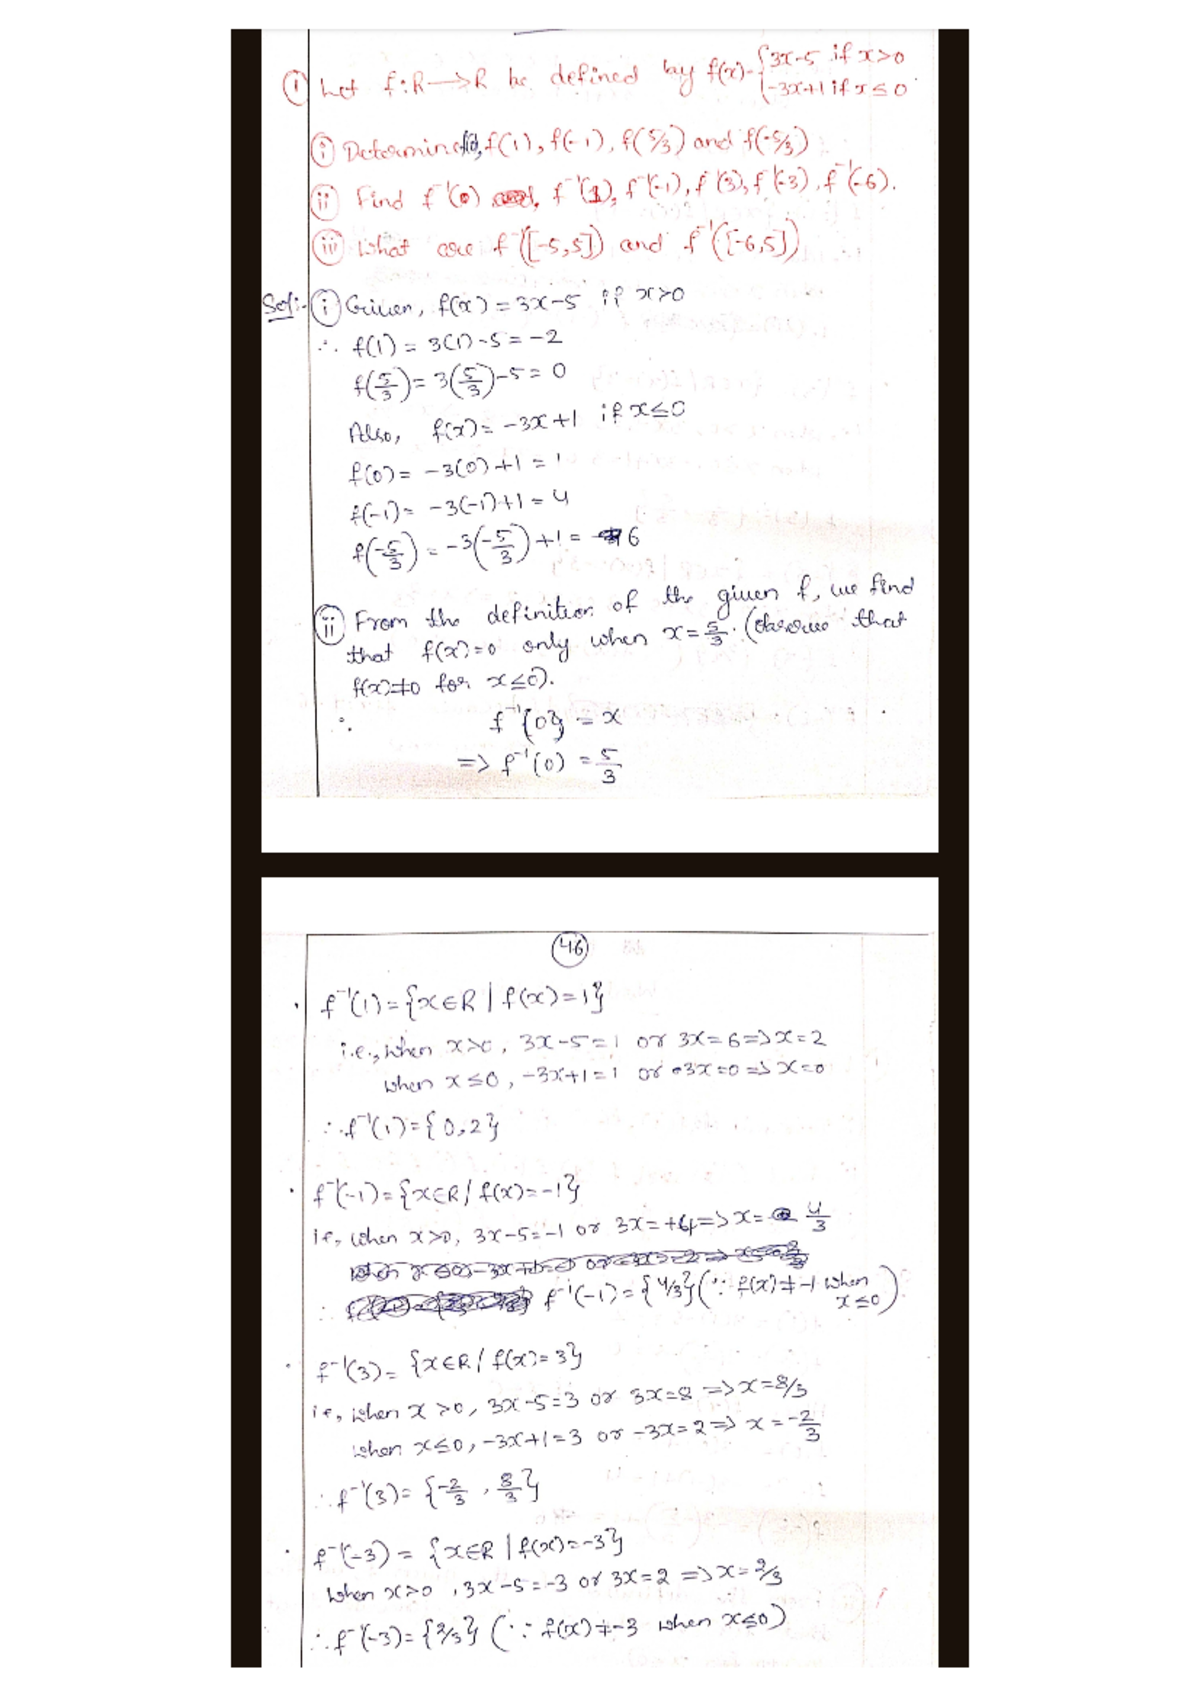 ① Let f:R→R be defined by f(x)={3x-5 if x>0
{-3x+1 if x≤0
ⓘ Determine f(0), f(1), f(-1), f(5/3) and f(-5/3)
ⓘⓘ Find f⁻¹(0), f⁻¹(1), f⁻¹(-1), f⁻¹(3), f⁻¹(-3), f⁻¹(-6).
ⓘⓘⓘ What are f⁻¹([-5,5]) and f⁻¹([-6,5])
Sol:- ⓘ Given, f(x) = 3x-5 if x>0
∴ f(1) = 3(1)-5 = -2
f(5/3) = 3(5/3)-5 = 0
Also, f(x) = -3x+1 if x≤0
f(0) = -3(0)+1 = 1
f(-1) = -3(-1)+1 = 4
f(-5/3) = -3(-5/3)+1 = 6
ⓘⓘ From the definition of the given f, we find
that f(x)=0 only when x=5/3. (observe that
f(x)≠0 for x≤0).
∴ f⁻¹{0} = x
=> f⁻¹(0) = 5/3
46
• f⁻¹(1) = {x∈R | f(x)=1}
i.e., when x>0, 3x-5=1 or 3x=6 => x=2
when x≤0, -3x+1=1 or -3x=0 => x=0
∴ f⁻¹(1) = {0,2}
• f⁻¹(-1) = {x∈R / f(x)=-1}
ie, when x>0, 3x-5=-1 or 3x=+4 => x= 4/3
∴ f⁻¹(-1) = {4/3} (∵ f(x)≠-1 when x≤0)
• f⁻¹(3) = {x∈R / f(x)=3}
ie, when x>0, 3x-5=3 or 3x=8 => x=8/3
when x≤0, -3x+1=3 or -3x=2 => x=-2/3
∴ f⁻¹(3) = {-2/3, 8/3}
• f⁻¹(-3) = {x∈R | f(x)=-3}
when x>0, 3x-5=-3 or 3x=2 => x=2/3
∴ f⁻¹(-3) = {2/3} (∵ f(x)≠-3 when x≤0)